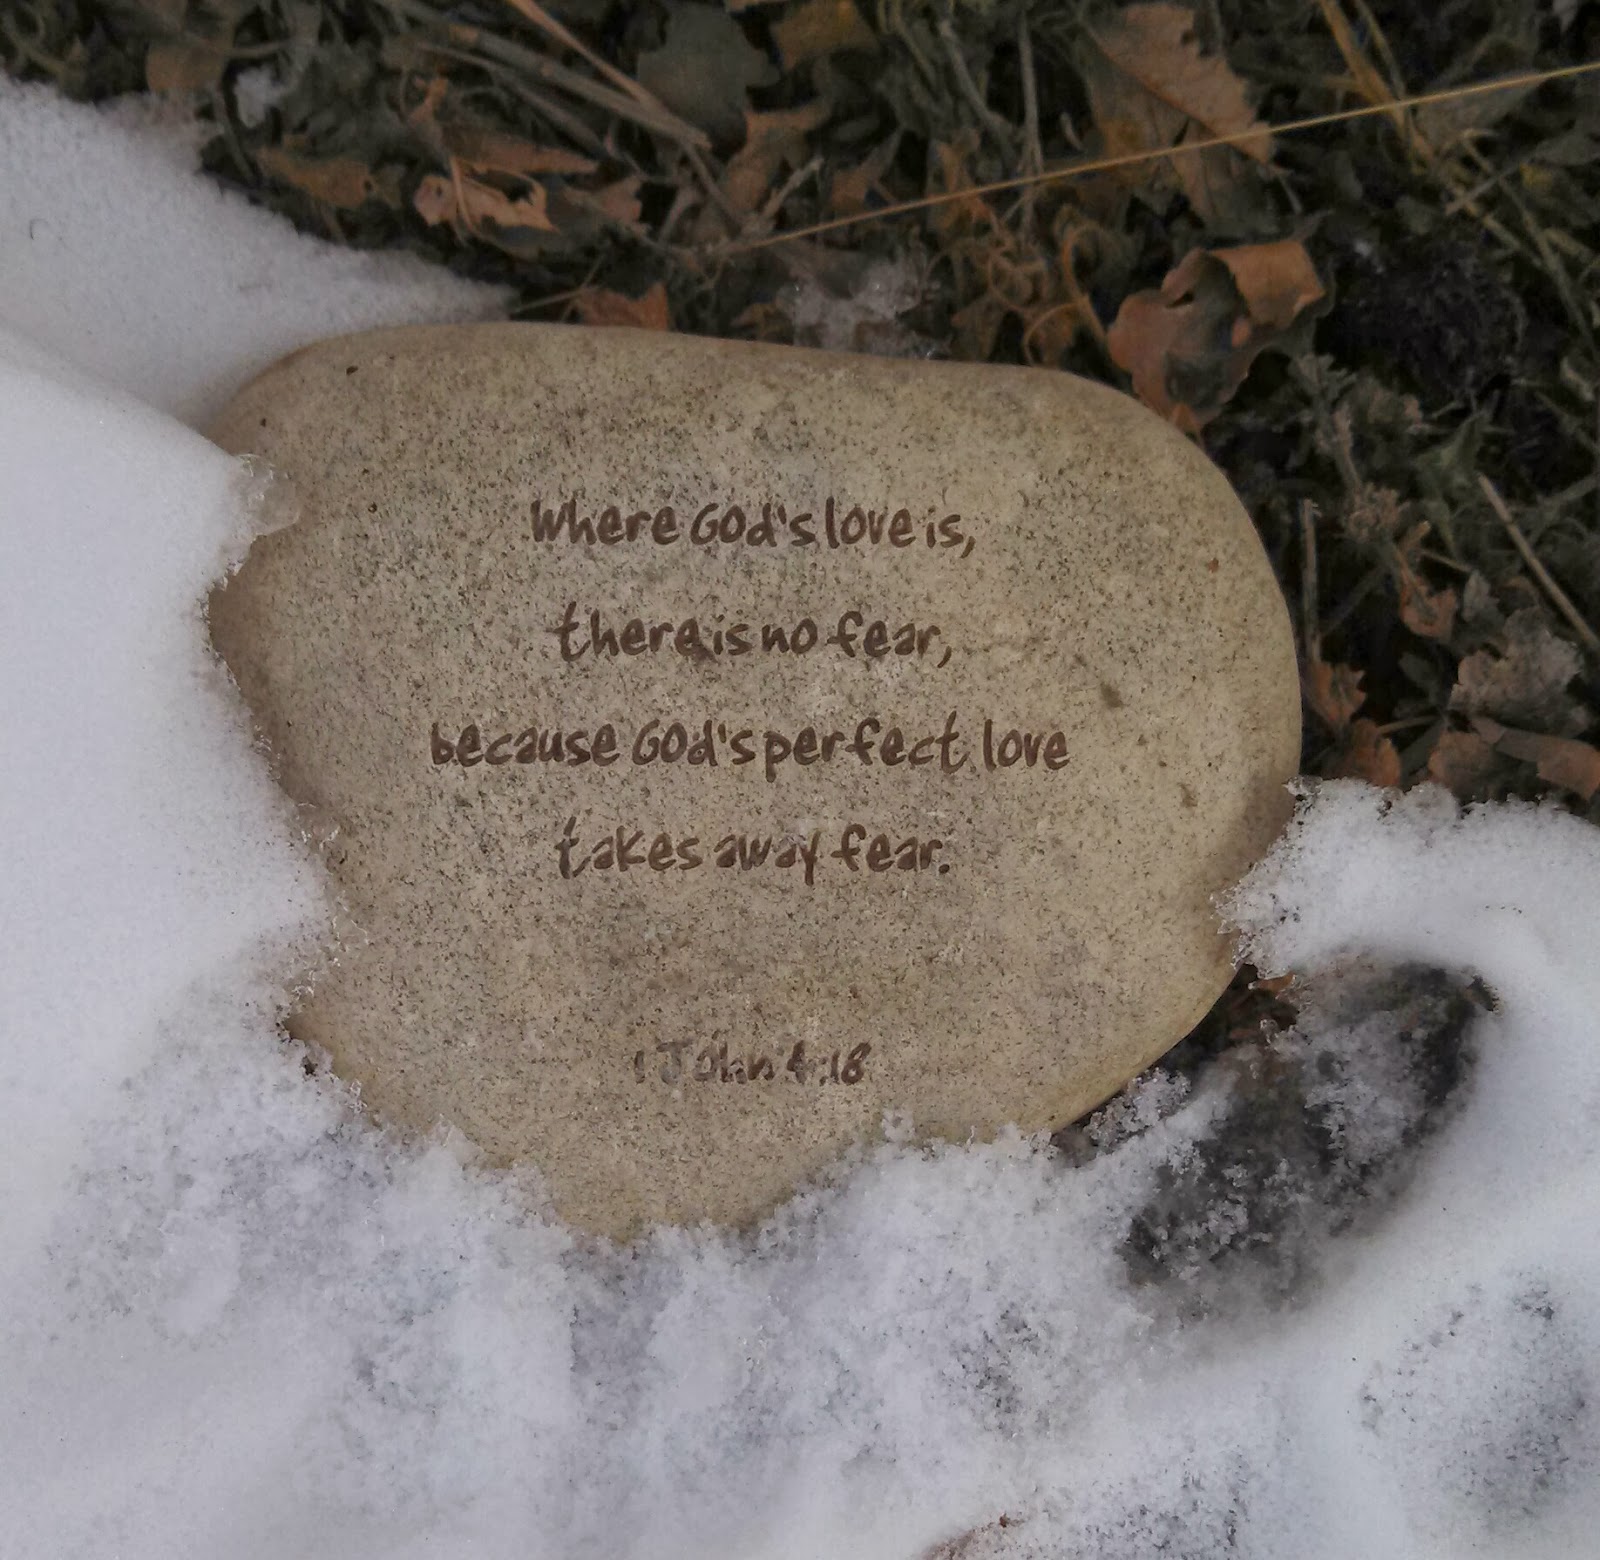 Where God's love is,
there is no fear,
because God's perfect love
takes away fear.
1 John 4:18